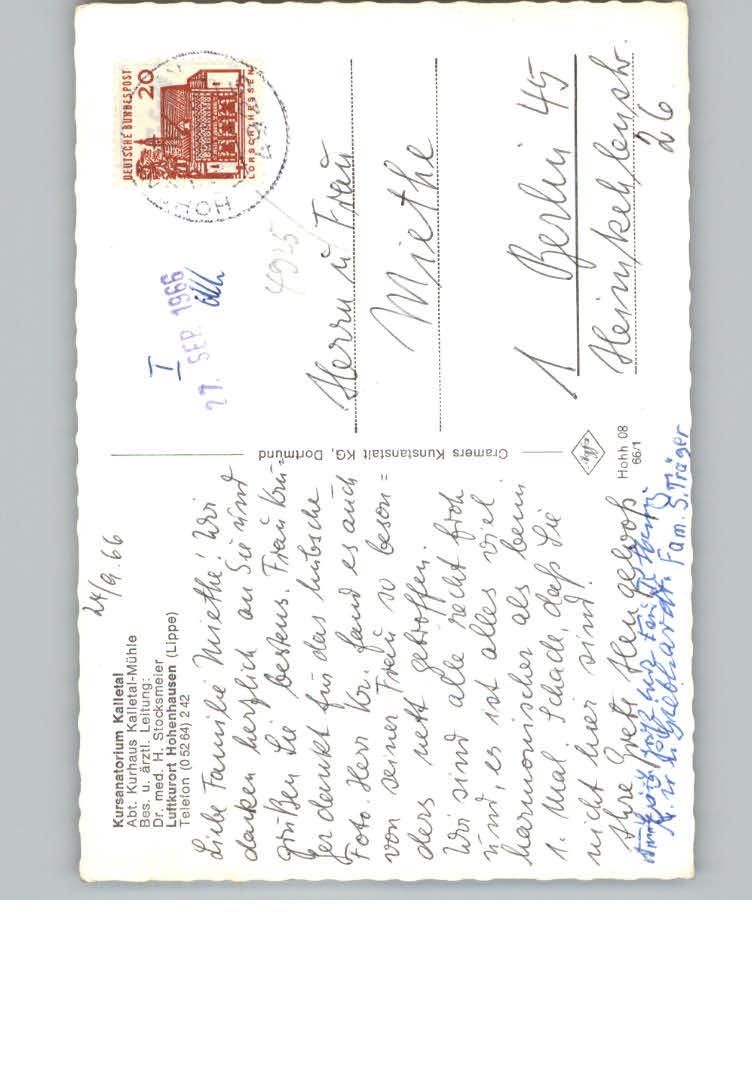 24/9. 66
Kursanatorium Kalletal
Abt. Kurhaus Kalletal-Mühle
Bes. u. ärztl. Leitung:
Dr. med. H. Stocksmeier
Luftkurort Hohenhausen (Lippe)
Telefon (0 52 64) 2 42
Liebe Familie Miethe! Wir
danken herzlich an Sie und
grüßen Sie bestens. Frau Krü=
ger dankt für das hübsche
Foto. Herr Kr. fand es auch
von seiner Frau so beson=
ders nett getroffen.
Wir sind alle recht froh
und, es ist alles viel
harmonischer als beim
1. Mal. Schade, daß Sie
nicht hier sind!
Ihre Grete
Fam. S. Träger
Cramers Kunstanstalt KG, Dortmund
Agfa
Hohh 08
66/1
DEUTSCHE BUNDESPOST
20
LORSCH/HESSEN
HOH
I
27. SEP. 1966
4925/
Herrn u Frau
Miethe
1 Berlin 45
26